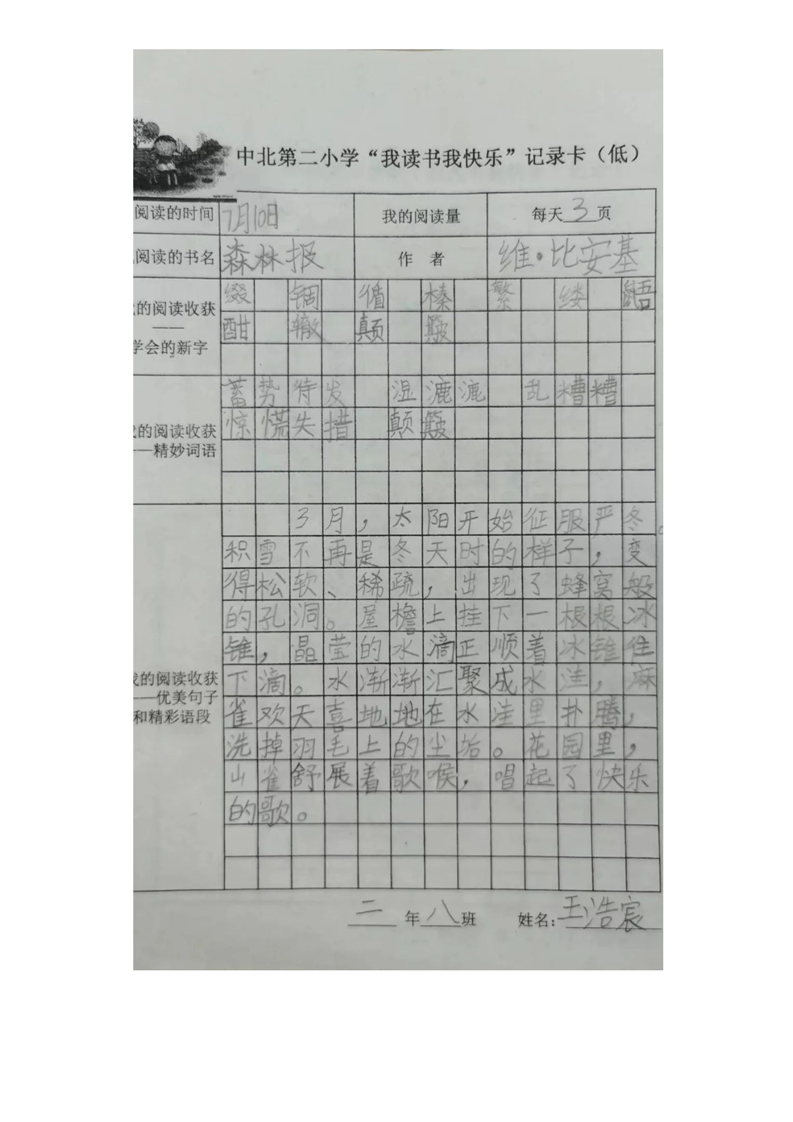 中北第二小学“我读书我快乐”记录卡（低）
阅读的时间 7月10日 我的阅读量 每天3页
阅读的书名 森林报 作 者 维·比安基
的阅读收获
——
学会的新字
缀 锢 循 榛 繁 缕
酣 辙 颠 簸
的阅读收获
——精妙词语
蓄势待发 湿漉漉 乱糟糟
惊慌失措 颠簸
的阅读收获
——优美句子
和精彩语段
3月，太阳开始征服严冬。
积雪不再是冬天时的样子，变
得松软、稀疏，出现了蜂窝般
的孔洞。屋檐上挂下一根根冰
锥，晶莹的水滴正顺着冰锥住
下滴。水渐渐汇聚成水洼，麻
雀欢天喜地地在水洼里扑腾，
洗掉羽毛上的尘垢。花园里，
山雀舒展着歌喉，唱起了快乐
的歌。
二年八班 姓名：王浩宸